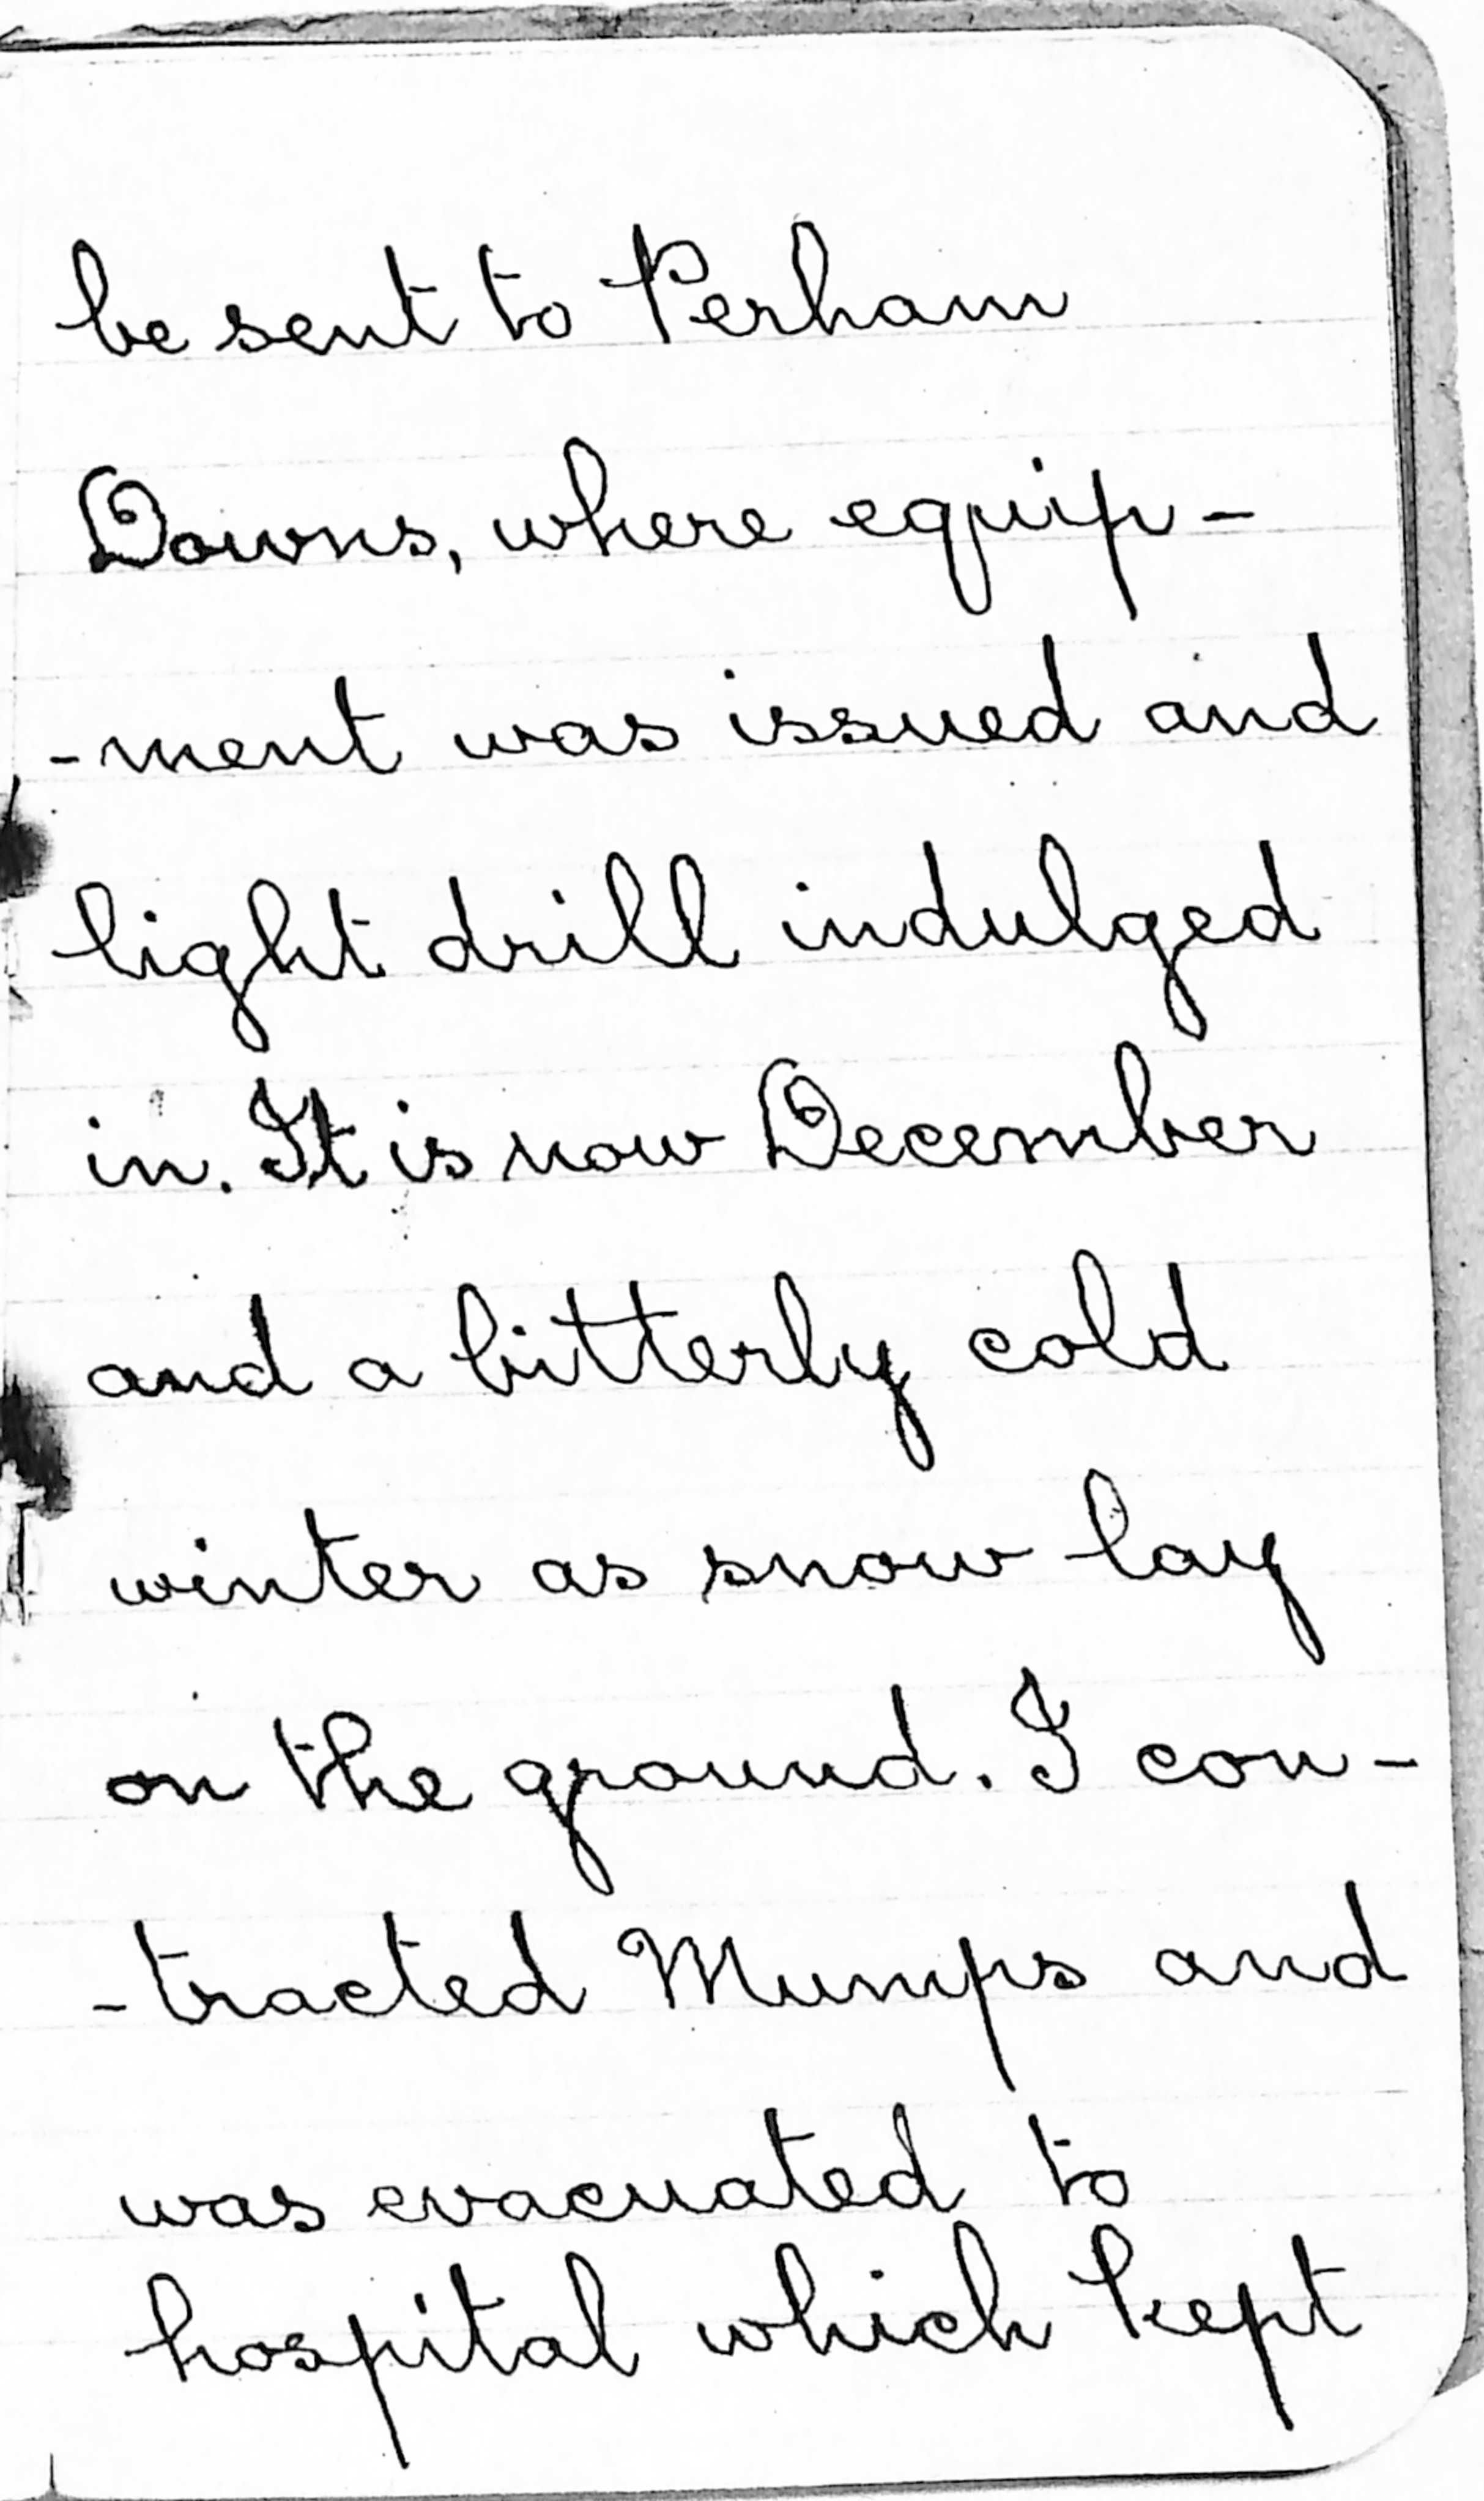 be sent to Perham
Downs, where equip-
-ment was issued and
light drill indulged
in. It is now December
and a bitterly cold
winter as snow lay
on the ground. I con-
-tracted Mumps and
was evacuated to
hospital which kept